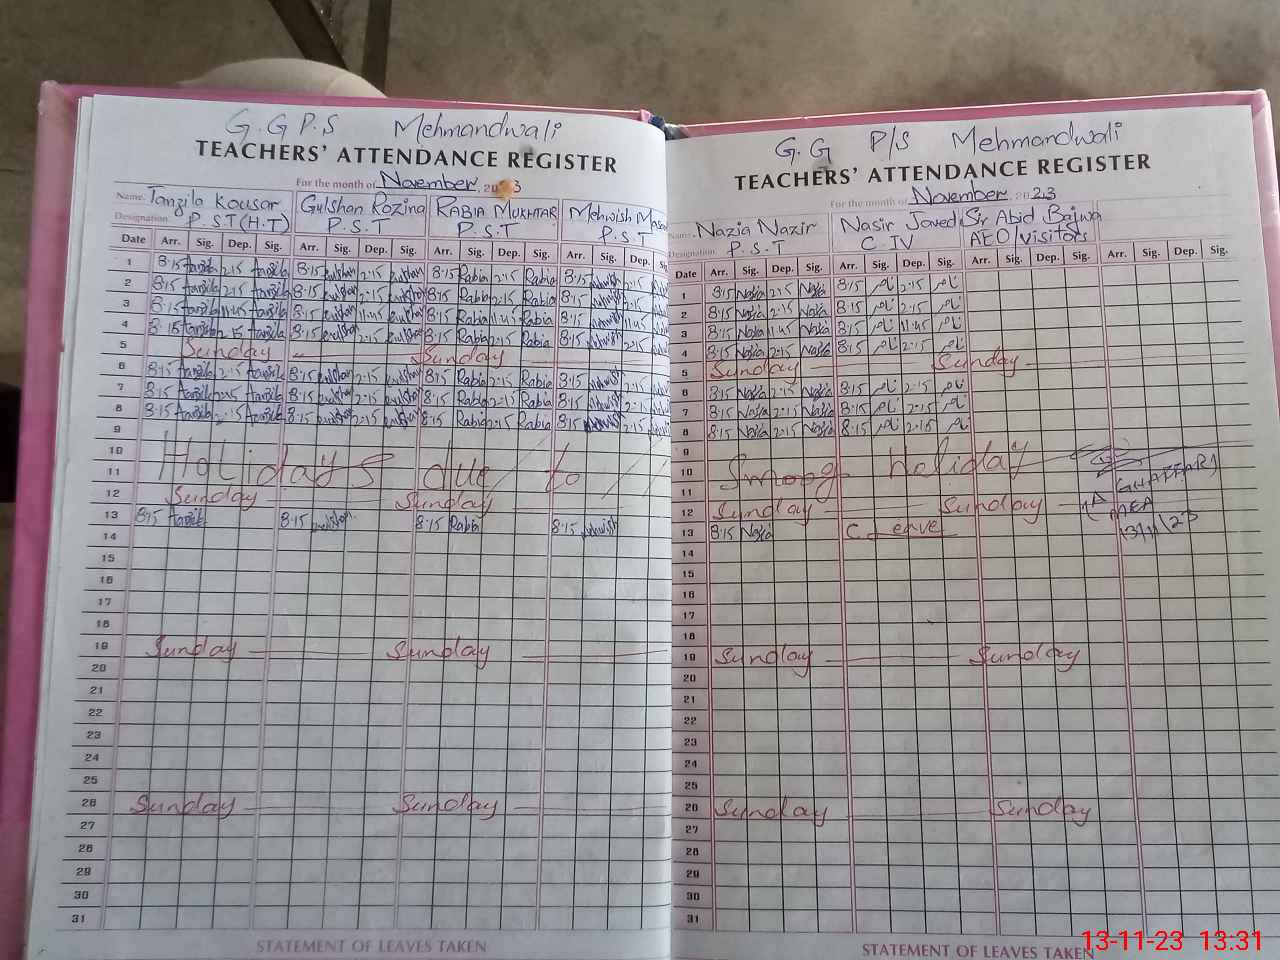 G.G P.S Mehmandwali
TEACHERS' ATTENDANCE REGISTER
For the month of November, 2023
Name. Tanzila Kousar Gulshan Rozina RABIA MUKHTAR Mehwish
Designation P.S.T(H.T) P.S.T P.S.T P.S.T
Date Arr. Sig. Dep. Sig. Arr. Sig. Dep. Sig. Arr. Sig. Dep. Sig. Arr. Sig. Dep.
1 8:15 Tanzila 2:15 Tanzila 8:15 Gulshan 2:15 Gulshan 8:15 Rabia 2:15 Rabia 8:15 Mehwish 2:15
2 8:15 Tanzila 2:15 Tanzila 8:15 Gulshan 2:15 Gulshan 8:15 Rabia 2:15 Rabia 8:15 Mehwish 2:15
3 8:15 Tanzila 11:45 Tanzila 8:15 Gulshan 11:45 Gulshan 8:15 Rabia 11:45 Rabia 8:15 Mehwish
4 8:15 Tanzila 2:15 Tanzila 8:15 Gulshan 2:15 Gulshan 8:15 Rabia 2:15 Rabia 8:15 Mehwish 2:15
5 Sunday Sunday
6 8:15 Tanzila 2:15 Tanzila 8:15 Gulshan 2:15 Gulshan 8:15 Rabia 2:15 Rabia 8:15 Mehwish 2:15
7 8:15 Tanzila 2:15 Tanzila 8:15 Gulshan 2:15 Gulshan 8:15 Rabia 2:15 Rabia 8:15 Mehwish 2:15
8 8:15 Tanzila 2:15 Tanzila 8:15 Gulshan 2:15 Gulshan 8:15 Rabia 2:15 Rabia 8:15 Mehwish 2:15
9
10 Holidays due to
11
12 Sunday Sunday
13 8:15 Tanzila 8:15 Gulshan 8:15 Rabia 8:15 Mehwish
14
15
16
17
18
19 Sunday Sunday
20
21
22
23
24
25
26 Sunday Sunday
27
28
29
30
31
STATEMENT OF LEAVES TAKEN
G.G P/S Mehmandwali
TEACHERS' ATTENDANCE REGISTER
For the month of November 2023
Name. Nazia Nazir Nasir Javed Sir Abid Bajwa
Designation P.S.T C-IV AEO/visitors
Date Arr. Sig. Dep. Sig. Arr. Sig. Dep. Sig. Arr. Sig. Dep. Sig. Arr. Sig. Dep. Sig.
1 8:15 Nazia 2:15 Nazia 8:15 ناصر 2:15 ناصر
2 8:15 Nazia 2:15 Nazia 8:15 ناصر 2:15 ناصر
3 8:15 Nazia 11:45 Nazia 8:15 ناصر 11:45 ناصر
4 8:15 Nazia 2:15 Nazia 8:15 ناصر 2:15 ناصر
5 Sunday Sunday
6 8:15 Nazia 2:15 Nazia 8:15 ناصر 2:15 ناصر
7 8:15 Nazia 2:15 Nazia 8:15 ناصر 2:15 ناصر
8 8:15 Nazia 2:15 Nazia 8:15 ناصر 2:15 ناصر
9
10 Smoog Holiday
11
12 Sunday Sunday
MEA
13 8:15 Nazia C Leave 13/11/23
14
15
16
17
18
19 Sunday Sunday
20
21
22
23
24
25
26 Sunday Sunday
27
28
29
30
31
STATEMENT OF LEAVES TAKEN
13-11-23 13:31